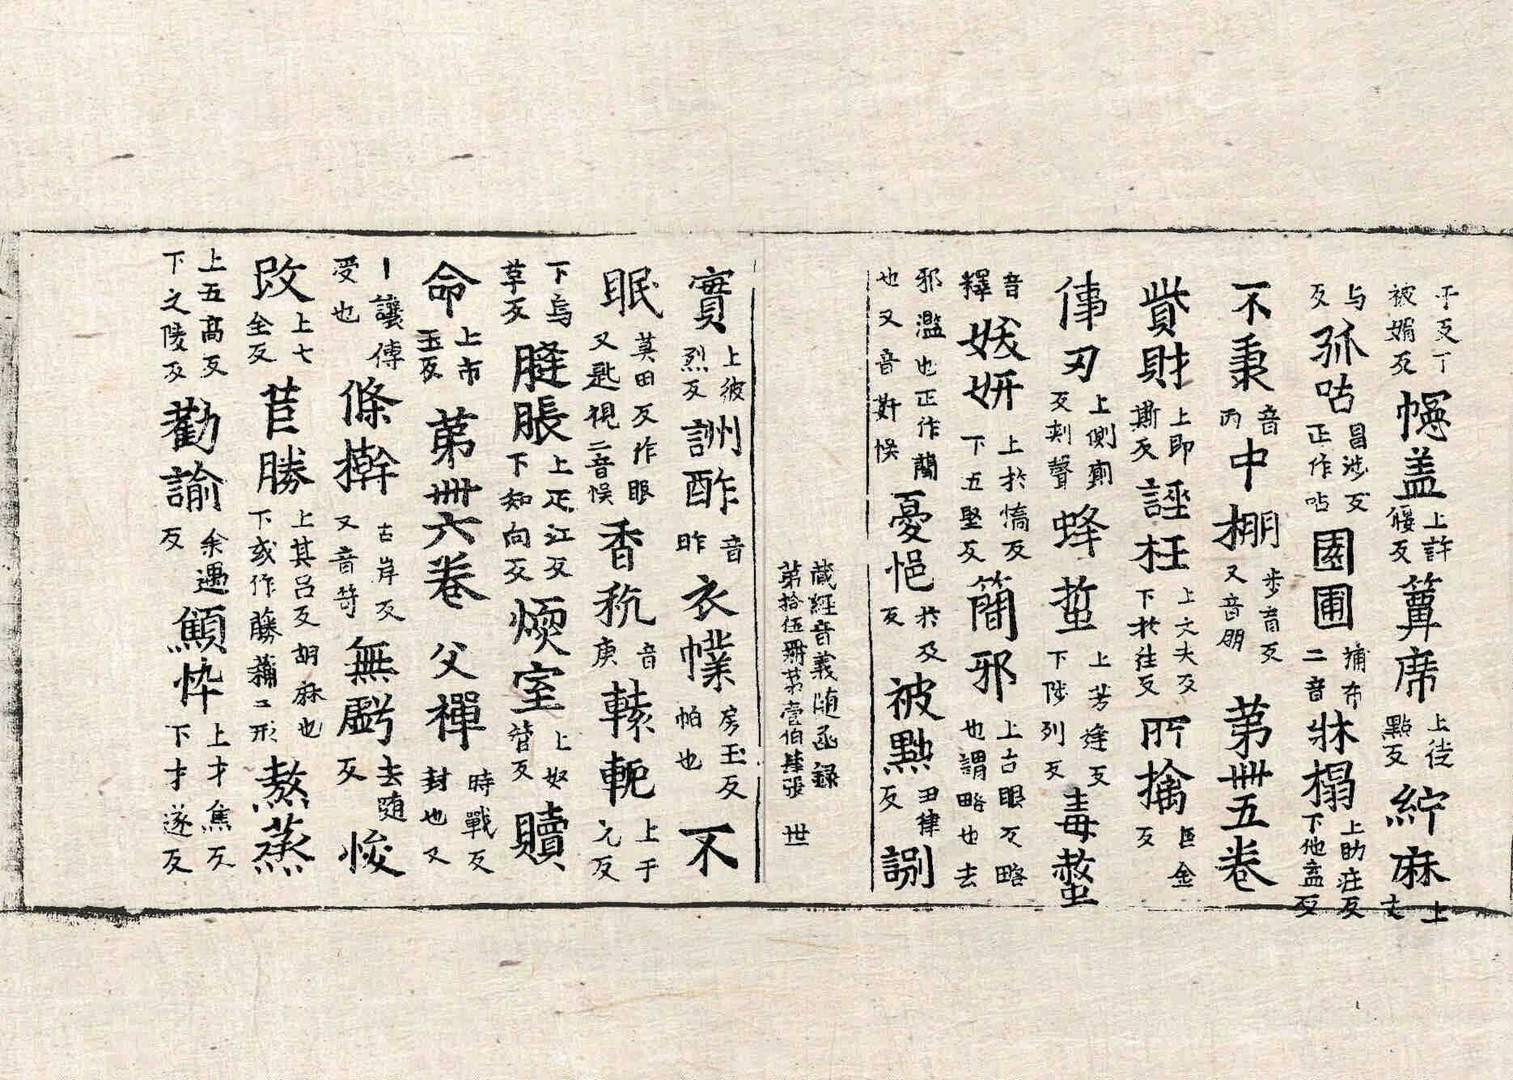 于反丁被媚反幰盖上許偃反簟席上徒點反紵麻上丈
与反弬呫昌涉反正作呫園圃補布二音牀榻上助庄反下他盍反
不秉音丙中棚步育反又音朋第卅五卷
貲財上即斯反誣枉上文夫反下於往反所擒巨金反
倳刃上側廁反刾聲蜂蜇上芳逢反下陟列反毒螫
音釋妖妍上於憍反下五堅反簡邪上古眼反略也謂略也去
邪濫也正作蕳也又音姧悮憂悒於及反被黜丑律反詶
藏經音義随函録第拾伍冊第壹伯肆張 世
實上彼烈反詶酢音昨衣幞房玉反帕也不
眠莫田反作眼又匙視二音悮香秔音庚轅軛上于元反
下烏草反膖脹上疋江反下知向反煗室上奴管反贖
命上市玉反第卅六卷父禪時戰反封也又
丨讓傳受也條擀古岸反又音笴無虧去随反悛
改上七全反苣勝上其吕反胡麻也下或作藤蕂二形熬蒸
上五高反下之陵反勸諭余遇反顦悴上才焦反下才遂反